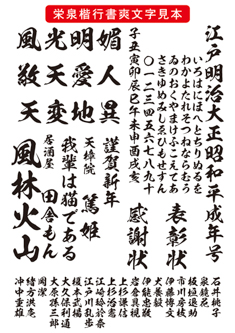 栄泉楷行書爽文字見本
江戸明治大正昭和平成年号
いろはにほへとちりぬるを
わかよたれそつねならむう
ゐのおくやまけふこえてあ
さきゆめみしゑひもせすん
〇一二三四五六七八九十
子丑寅卯辰巳午未申酉戌亥
媚人異
明愛地
光天変
風天
表彰状
感謝状
謹賀新年
天璋院 篤姫
我輩は猫である
居酒屋 田舎もん
風林火山
石井桃子
泉鏡花
板垣退助
市川房枝
伊藤博文
犬養毅
伊能忠敬
岩倉具視
上杉謙信
上杉治憲
江崎玲於奈
江戸川乱歩
榎本武揚
大久保利通
大原孫三郎
緒方洪庵
沖中重雄